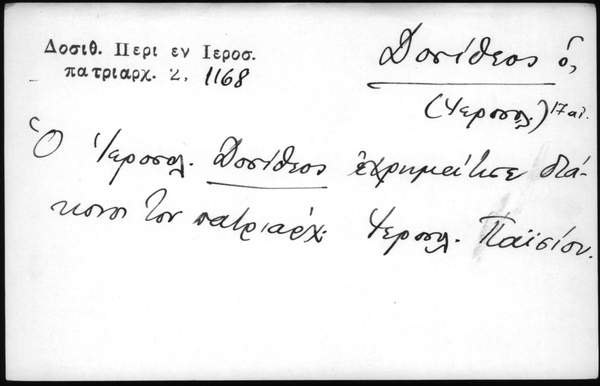 Δοσιθ. Περι εν Ιεροσ.
πατριαρχ. 2, 1168
Δοσίθεος ὁ,
(Ἱεροσολ.) 17 αἰ.
Ὁ Ἱεροσολ. Δοσίθεος ἐχρημάτισε διά-
κονος τοῦ πατριάρχ. Ἱεροσολ. Παϊσίου.